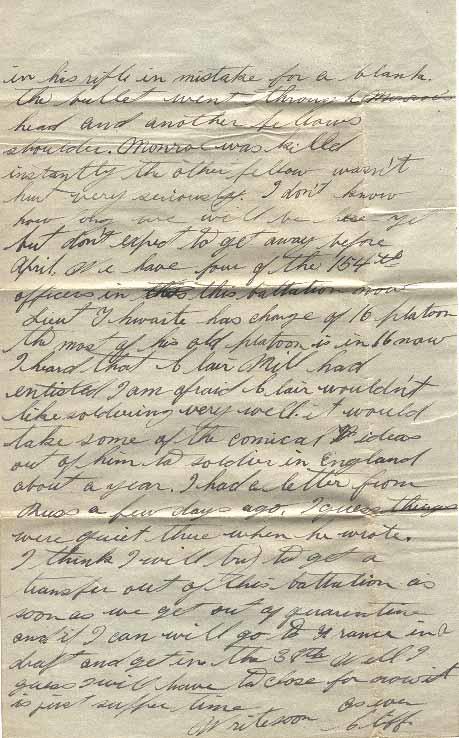 in his rifle in mistake for a blank.
the bullet went through Monroe's
head and another fellows
shoulder. Monroe was killed
instantly the other fellow wasn't
hurt very seriously. I don't know
how long we will be here yet
but don't expect to get away before
April. We have four of the 154th
officers in this this battation now
Lieut Thwaite has charge of 16 platoon
the most of his old platoon is in 16 now
I heard that Clair Mill had
enlisted I am afraid Clair wouldn't
like soldering very well. it would
take some of the comical ideas
out of him to soldier in England
about a year. I had a letter from
Russ a few days ago. I guess things
were quiet there when he wrote.
I think I will try to get a
transfer out of this battation as
soon as we get out of quarentine
and if I can will go to France in a
draft and get in the 38th Well I
guess I will have to close for now it
is just supper time as ever
Write soon Cliff.